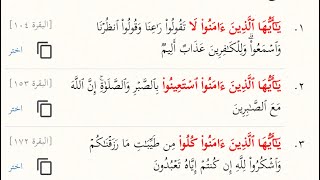 ١. يَـٰٓأَيُّهَا ٱلَّذِينَ ءَامَنُوا۟ لَا تَقُولُوا۟ رَٰعِنَا وَقُولُوا۟ ٱنظُرْنَا [البقرة ١٠٤]
وَٱسْمَعُوا۟ ۗ وَلِلْكَـٰفِرِينَ عَذَابٌ أَلِيمٌ اختر
٢. يَـٰٓأَيُّهَا ٱلَّذِينَ ءَامَنُوا۟ ٱسْتَعِينُوا۟ بِٱلصَّبْرِ وَٱلصَّلَوٰةِ ۚ إِنَّ ٱللَّهَ [البقرة ١٥٣]
مَعَ ٱلصَّـٰبِرِينَ اختر
٣. يَـٰٓأَيُّهَا ٱلَّذِينَ ءَامَنُوا۟ كُلُوا۟ مِن طَيِّبَـٰتِ مَا رَزَقْنَـٰكُمْ [البقرة ١٧٢]
وَٱشْكُرُوا۟ لِلَّهِ إِن كُنتُمْ إِيَّاهُ تَعْبُدُونَ اختر